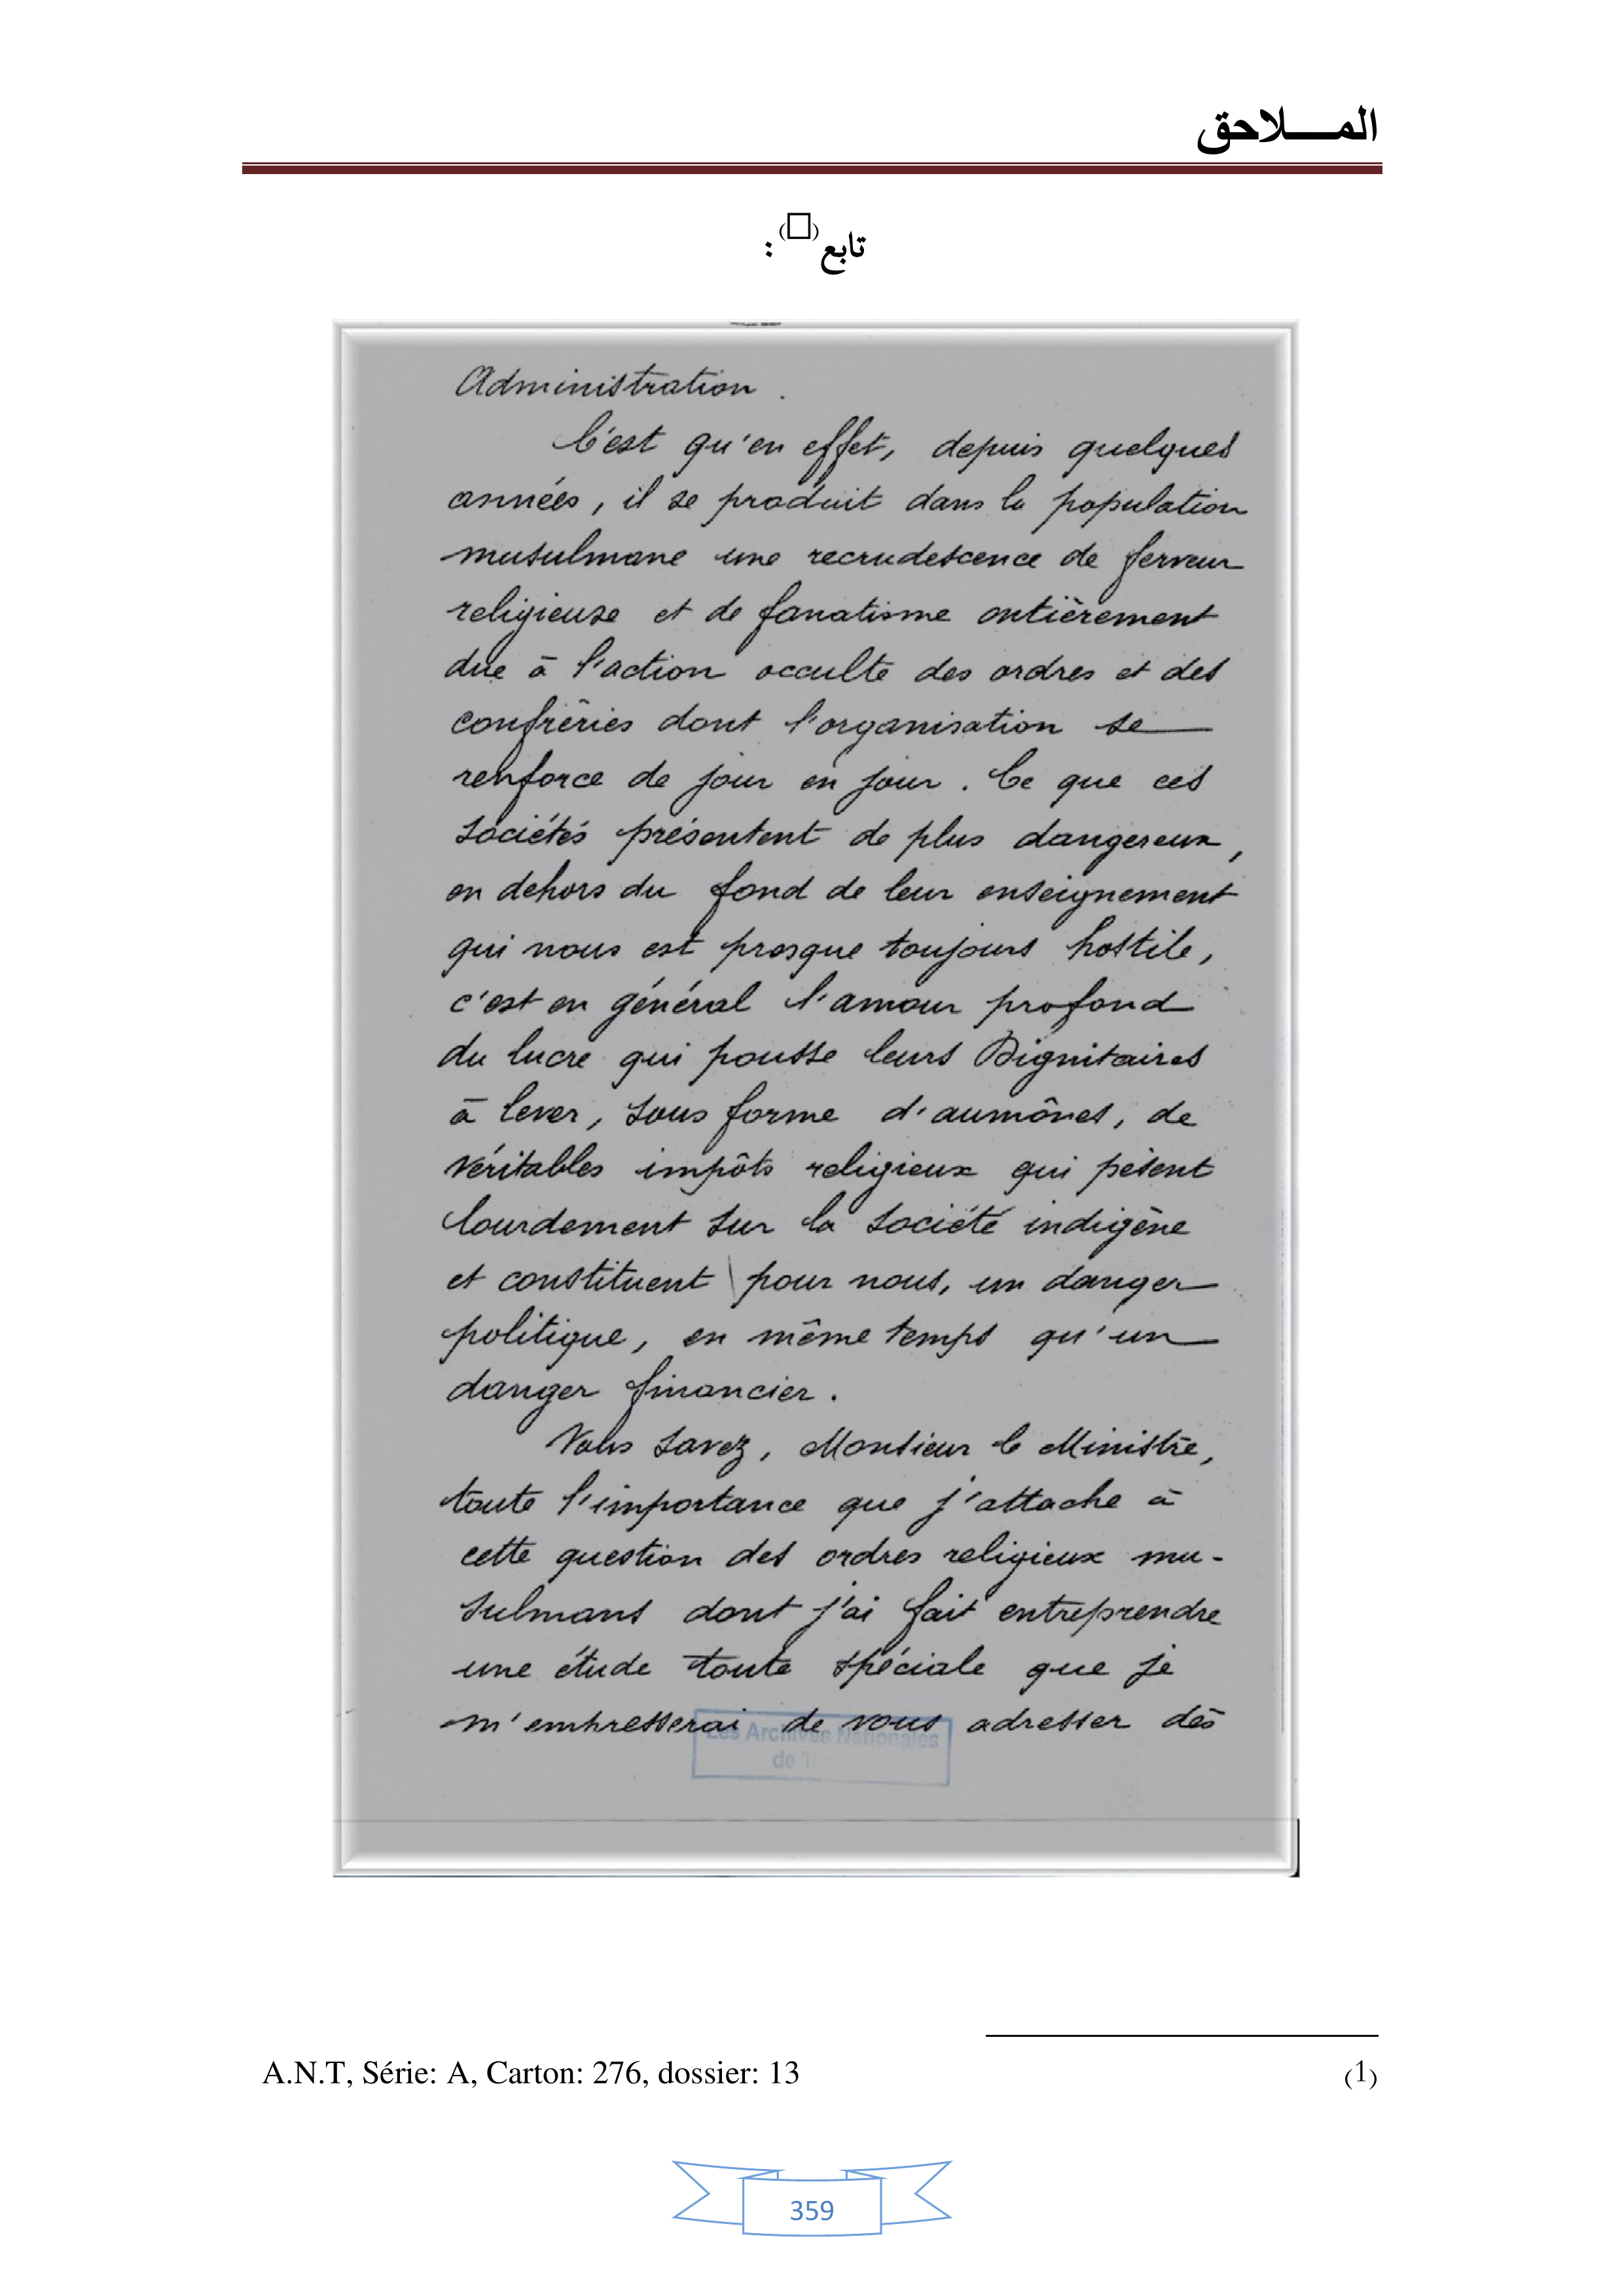 المـــــلاحق
تابع(□) :
Administration.
C'est qu'en effet, depuis quelques
années, il se produit dans la population
musulmane une recrudescence de ferveur
religieuse et de fanatisme entièrement
due à l'action occulte des ordres et des
confrèries dont l'organisation se
renforce de jour en jour. Ce que ces
sociétés présentent de plus dangereux,
en dehors du fond de leur enseignement
qui nous est presque toujours hostile,
c'est en général l'amour profond
du lucre qui pousse leurs Dignitaires
à lever, sous forme d'aumônes, de
véritables impôts religieux qui pèsent
lourdement sur la société indigène
et constituent pour nous, un danger
politique, en même temps qu'un
danger financier.
Vous savez, Monsieur le Ministre,
toute l'importance que j'attache à
cette question des ordres religieux mu-
sulmans dont j'ai fait entreprendre
une étude toute spéciale que je
m'empresserai de vous adresser dès
Les Archives Nationales
de
A.N.T, Série: A, Carton: 276, dossier: 13 (1)
359